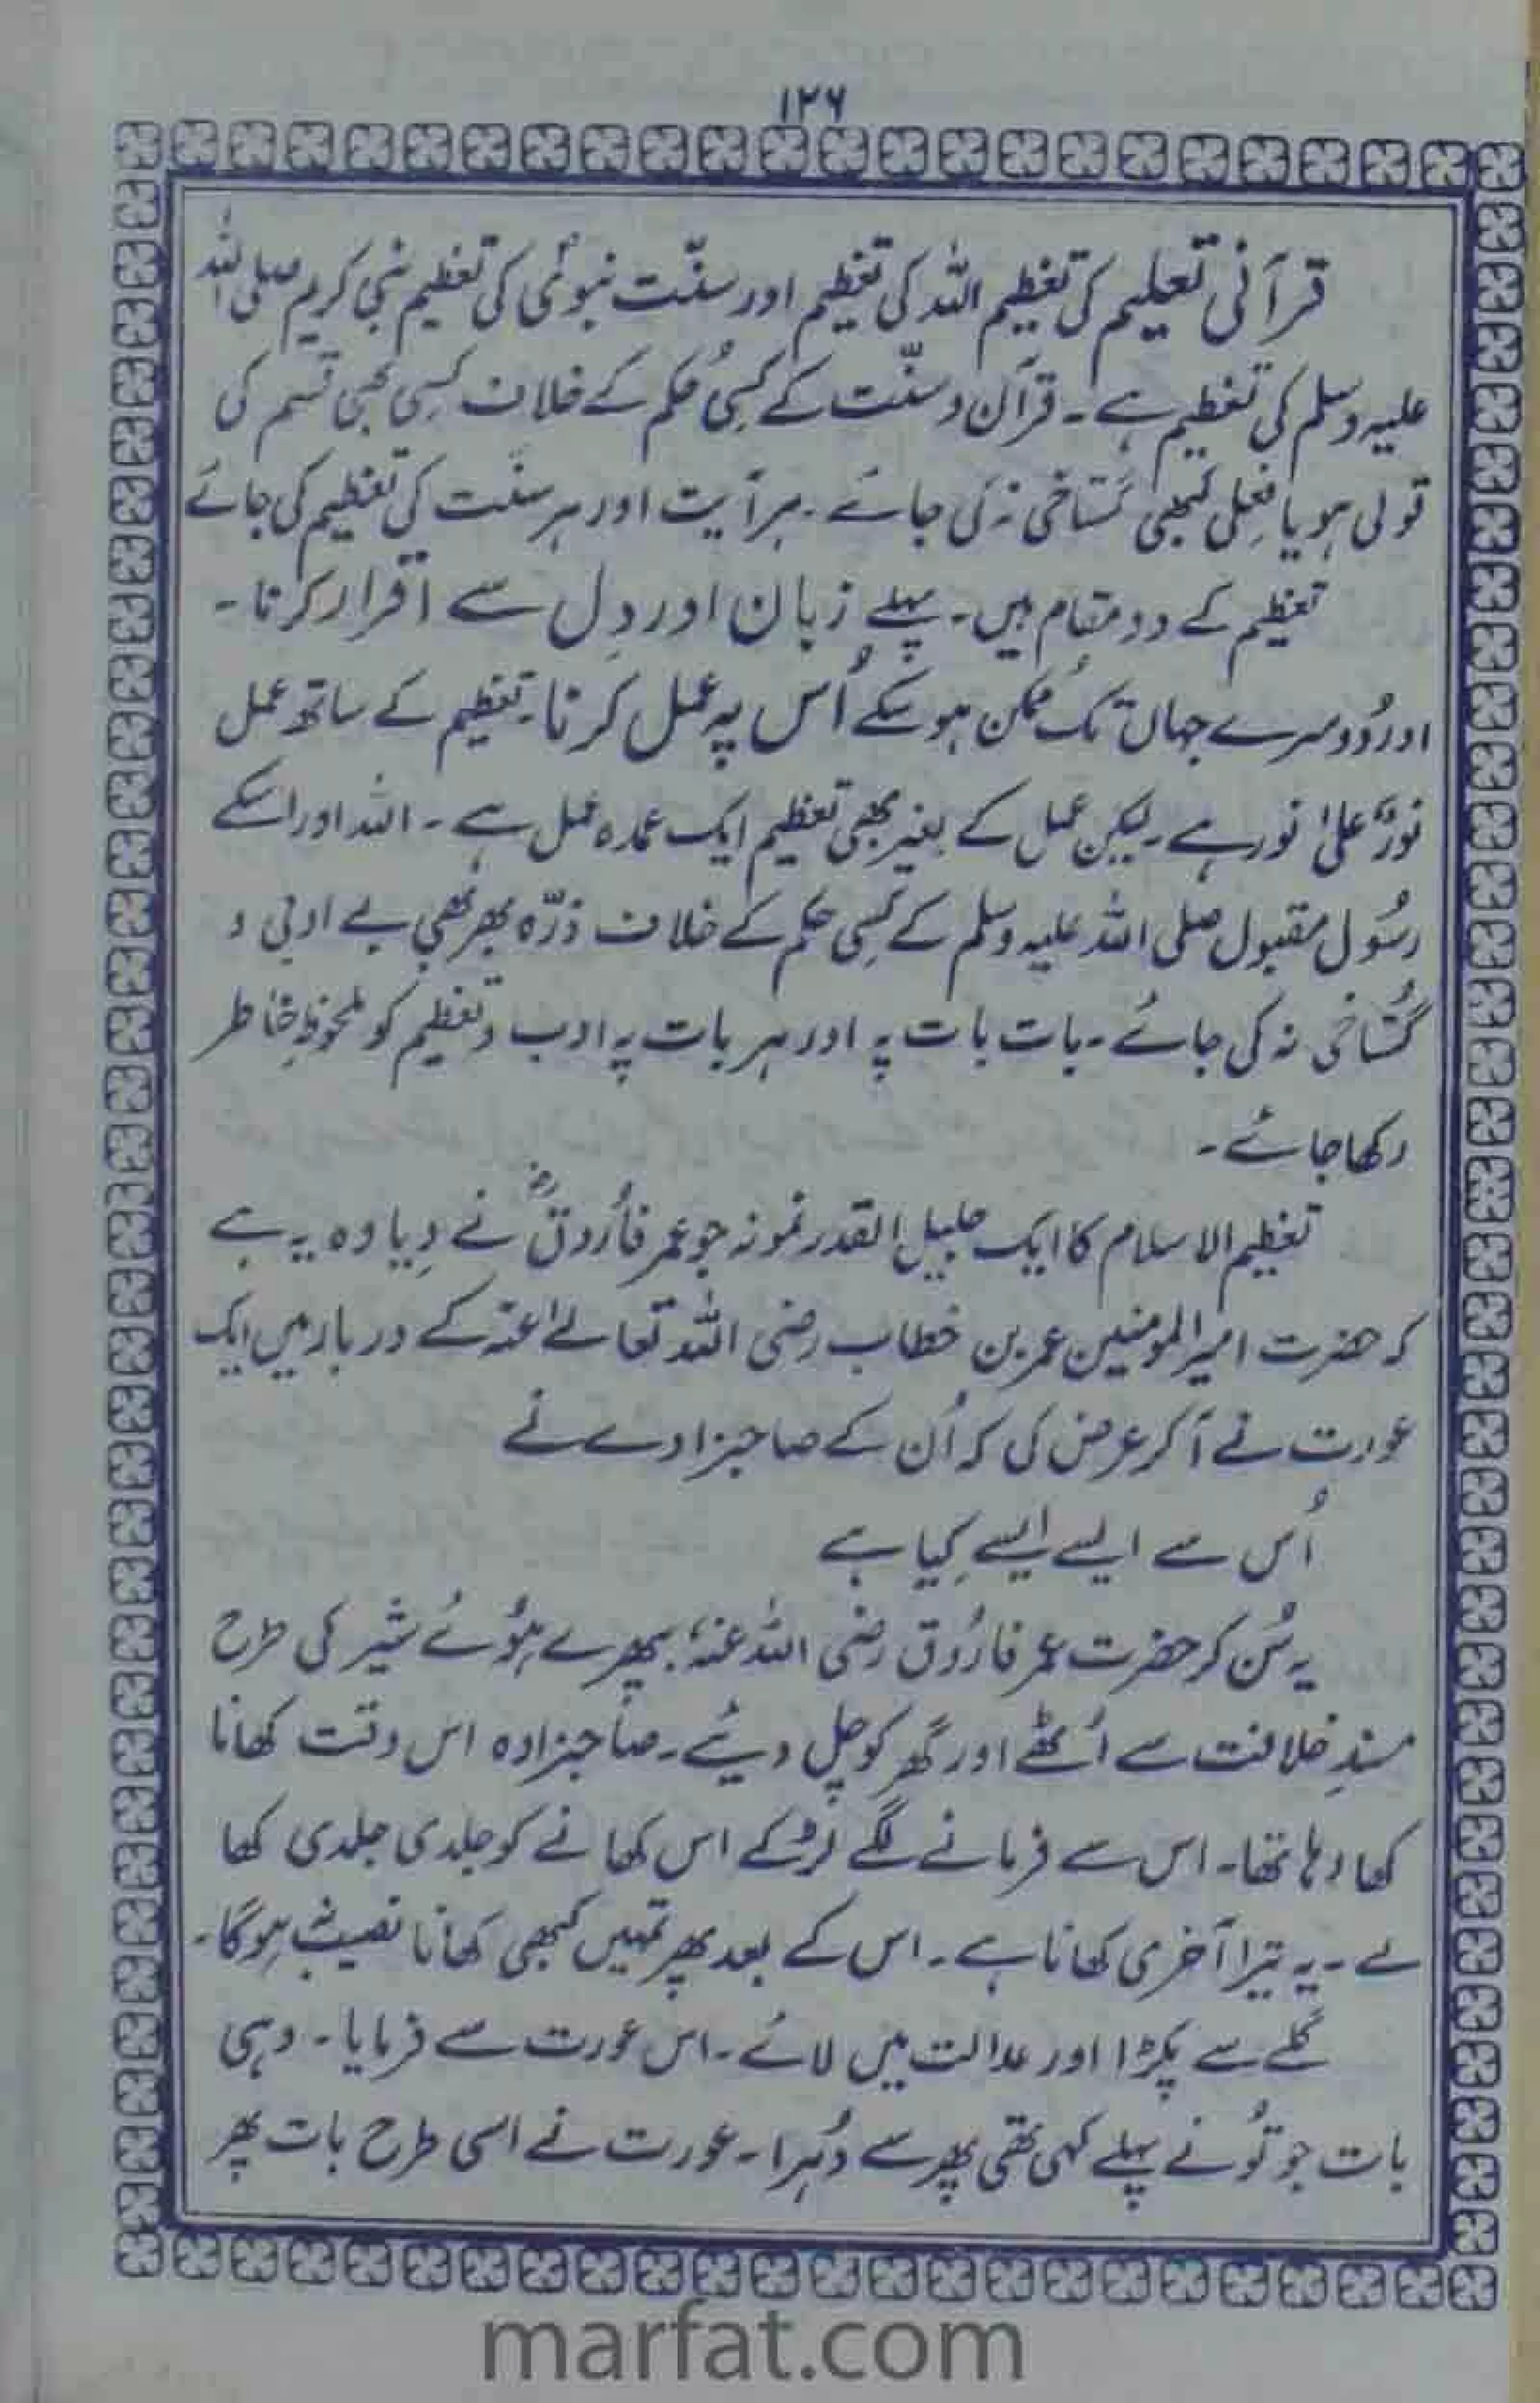 ۱۲۶
قرآنی تعلیم کی تعظیم اللہ کی تعظیم اور سنّت نبویؐ کی تعظیم نبی کریم صلی اللہ
علیہ وسلم کی تعظیم ہے ۔ قرآن و سنّت کے کسی حکم کے خلاف کسی بھی قسم کی
قولی ہو یا فعلی کبھی گستاخی نہ کی جائے ۔ ہر آیت اور ہر سنّت کی تعظیم کی جائے
تعظیم کے دو مقام ہیں ۔ پہلے زبان اور دِل سے اقرار کرنا ۔
اور دُوسرے جہاں تک مُمکن ہو سکے اُس پہ عمل کرنا ۔ تعظیم کے ساتھ عمل
نورٌ علیٰ نور ہے ۔ لیکن عمل کے بغیر بھی تعظیم ایک عمدہ عمل ہے ۔ اللہ اور اسکے
رسُول مقبول صلی اللہ علیہ وسلم کے کسی حکم کے خلاف ذرّہ بھر بھی بے ادبی و
گُستاخی نہ کی جائے ۔ بات بات پہ اور ہر بات پہ ادب و تعظیم کو ملحوظِ خاطر
رکھا جائے ۔
تعظیم الاسلام کا ایک جلیل القدر نمونہ جو عمر فارُوقؓ نے دِیا وہ یہ ہے
کہ حضرت امیر المومنین عمر بن خطاب رضی اللہ تعالےٰ عنہٗ کے دربار میں ایک
عورت نے آ کر عرض کی کہ اُن کے صاحبزادے نے
اُس سے ایسے ایسے کِیا ہے
یہ سُن کر حضرت عمر فارُوق رضی اللہ عنہٗ بپھرے ہُوئے شیر کی طرح
مسندِ خلافت سے اُٹھے اور گھر کو چل دیئے ۔ صاحبزادہ اس وقت کھانا
کھا رہا تھا ۔ اس سے فرمانے لگے لڑکے اس کھانے کو جلدی جلدی کھا
لے ۔ یہ تیرا آخری کھانا ہے ۔ اس کے بعد پھر تمہیں کبھی کھانا نصیب نہ ہوگا ۔
گلے سے پکڑا اور عدالت میں لائے ۔ اس عورت سے فرمایا ۔ وہی
بات جو تُو نے پہلے کہی تھی پھر سے دُہرا ۔ عورت نے اسی طرح بات پھر
marfat.com